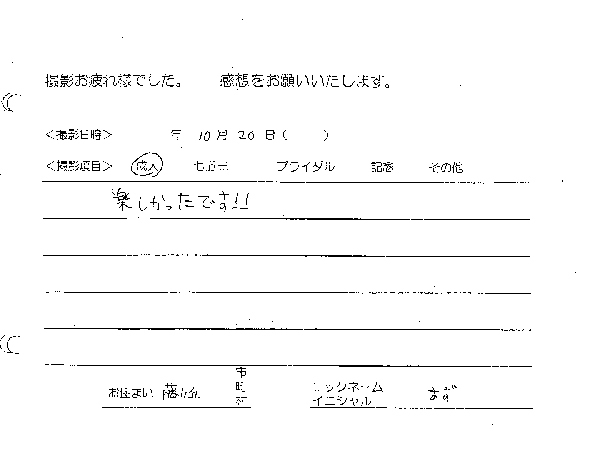 撮影お疲れ様でした。 感想をお願いいたします。
<撮影日時> 年 10月 20日( )
<撮影項目> 成人 七五三 ブライダル 記念 その他
楽しかったです!!
市
お住まい 藤枝 町
村
ニックネーム
イニシャル